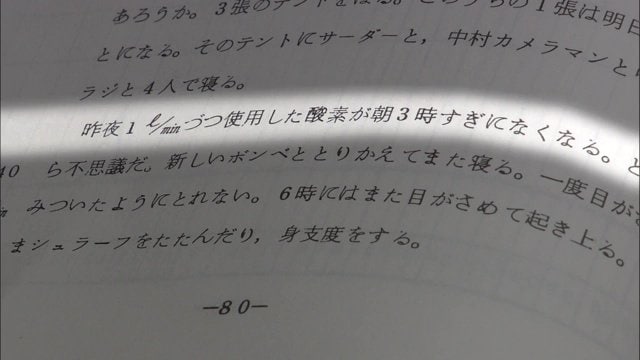 あろうか。3張のテントをはる。このうちの1張は明日
とになる。そのテントにサーダーと，中村カメラマンと
ラジと4人で寝る。
昨夜1ℓ/minづつ使用した酸素が朝3時すぎになくなる。と
40 ら不思議だ。新しいボンベととりかえてまた寝る。一度目がさ
みついたようにとれない。6時にはまた目がさめて起き上る。
まシュラーフをたたんだり，身支度をする。
—80—